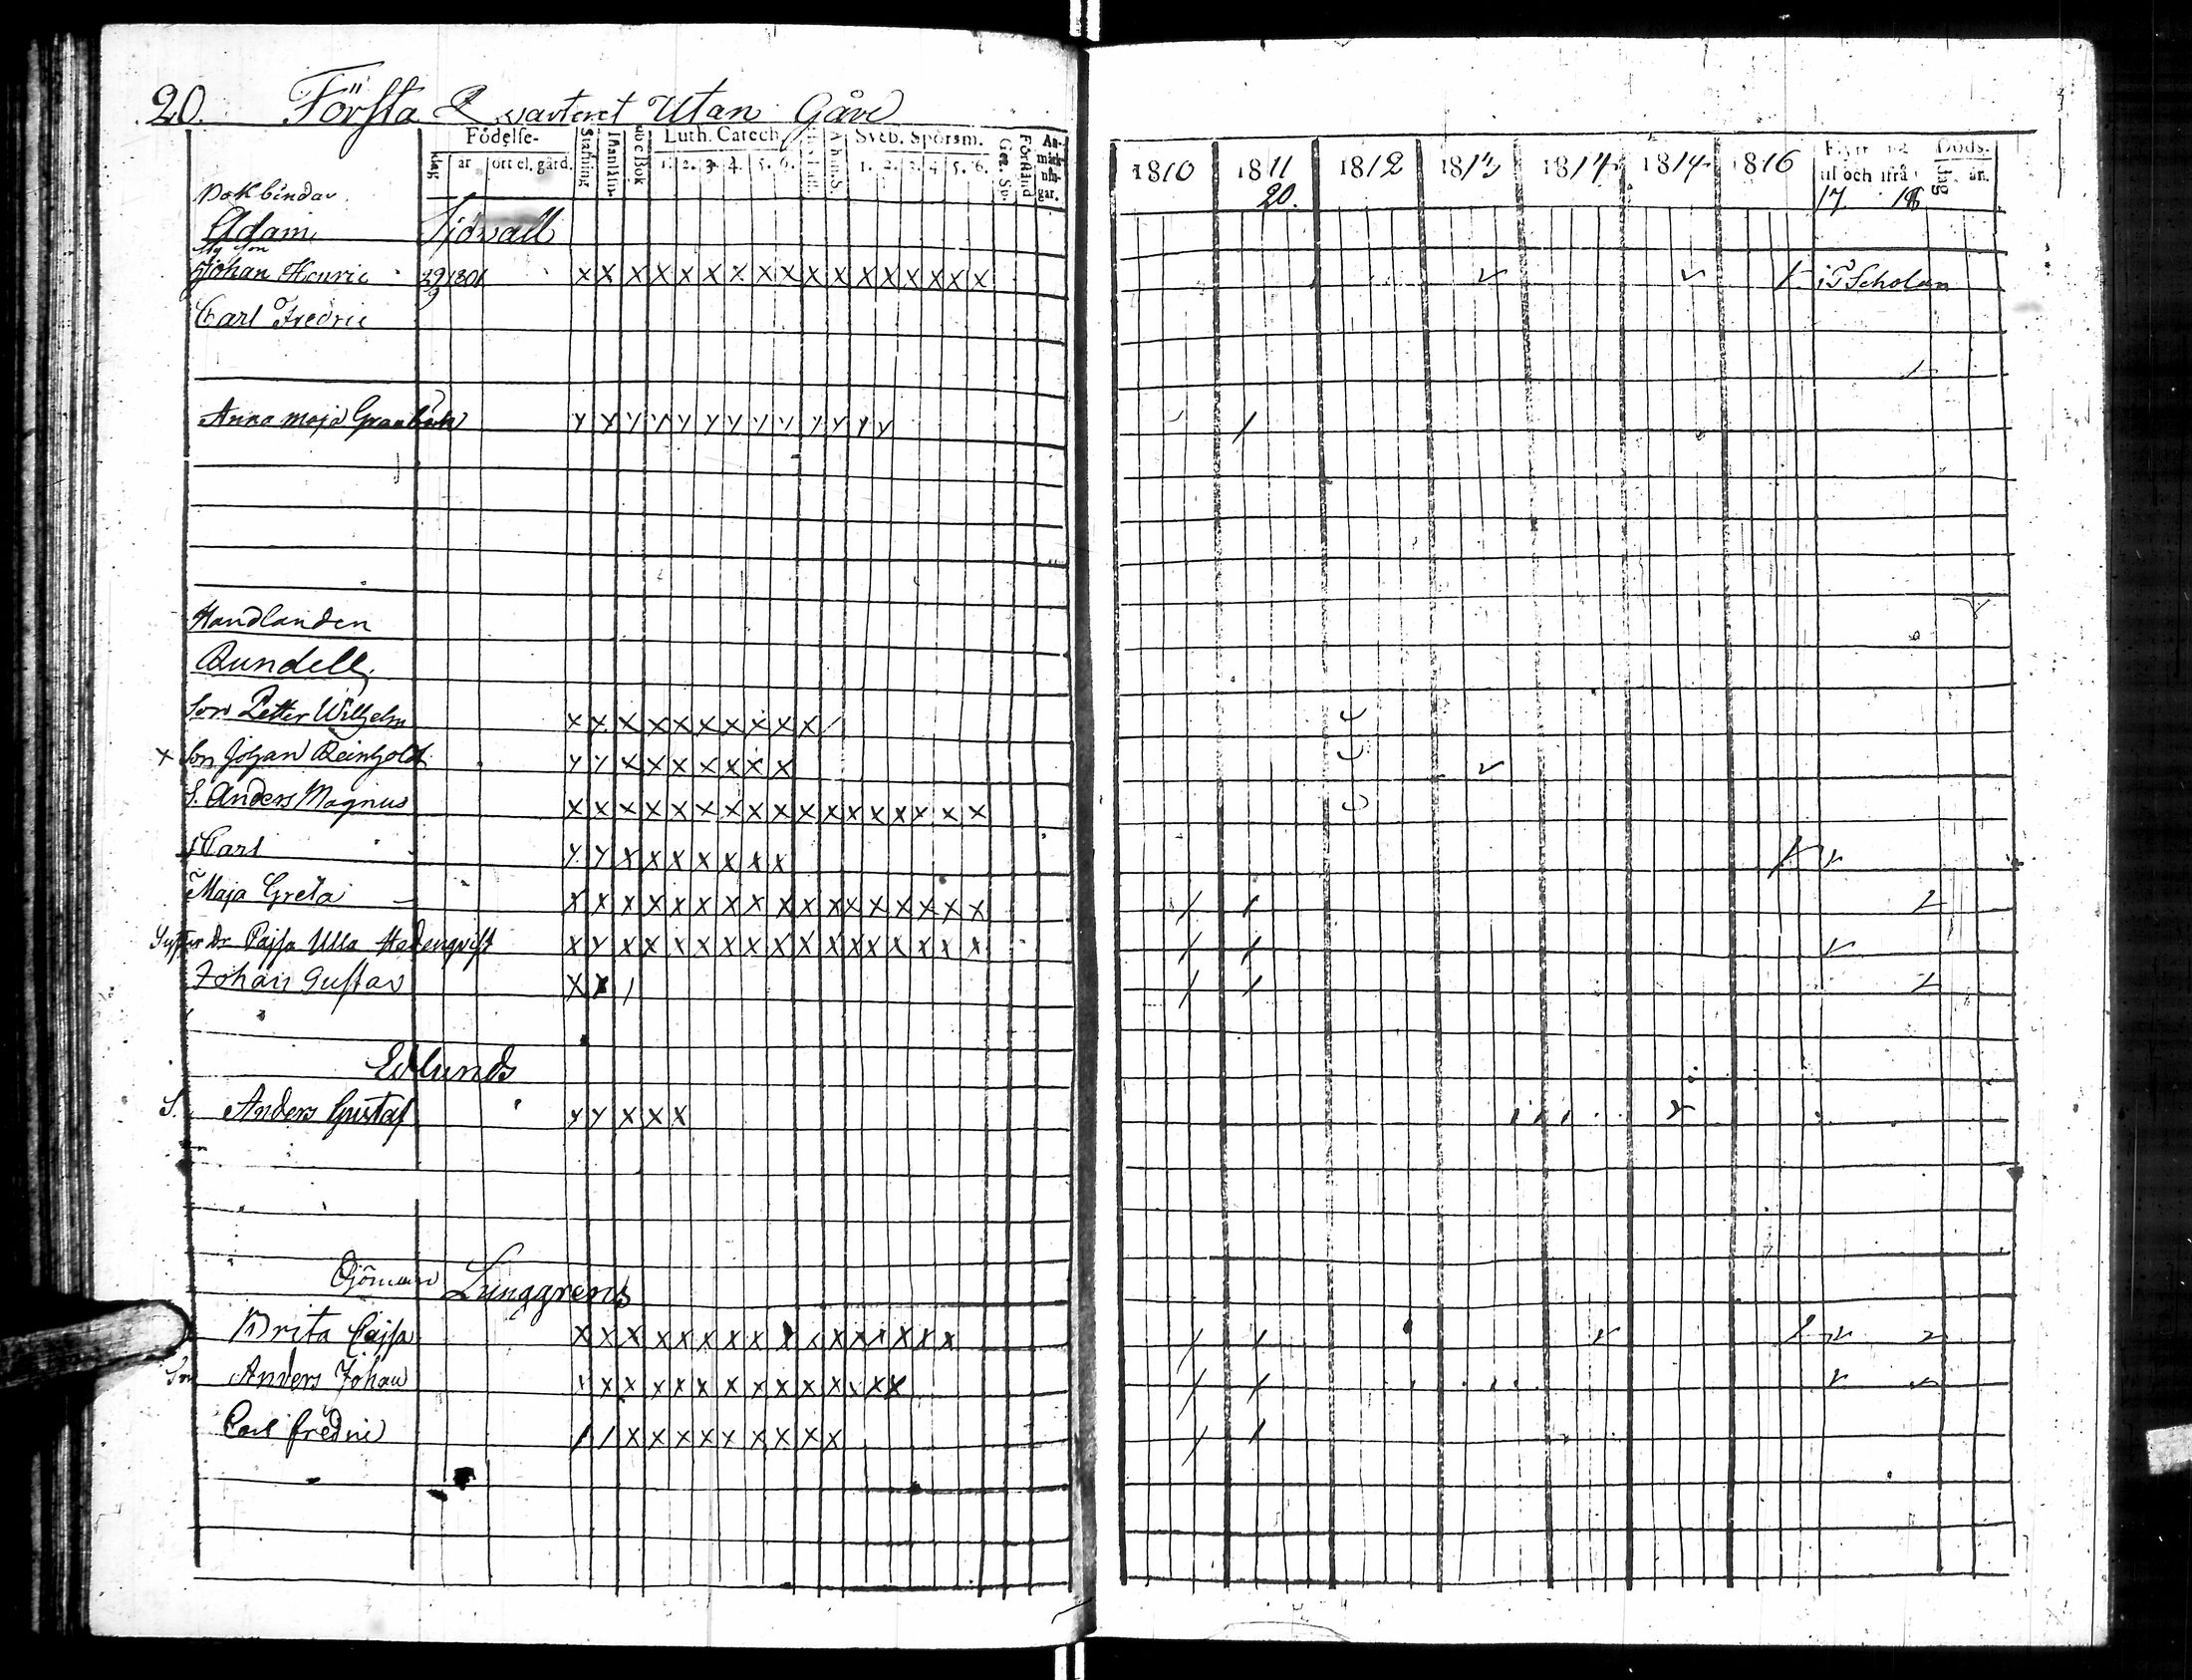 20. Första Qvarteret Utan Gåre
Födelse-
dag år ort el. gård.
Stafning
Luth. Catech.
1. 2. 3. 4. 5. 6.
Sveb. Spörsm.
1. 2. 3. 4. 5. 6.
Förstånd
An-
märk-
nin-
gar.
1810 1811 1812 1813 1814 1814 1816
20.
til och ifrå
Döds-
dag år.
17 18
Bokbindar
Adam Sjövall
Johan Henric 29/9 1801 x x x x x x x x x x x x x x x x x i Scholan
Carl Fredric
Anna Maja
Handlanden
Rundell
Son Petter Wilhelm x x x x x x x x x x
x Son Johan Reinhold y y x x x x x x x
S. Anders Magnus x x x x x x x x x x x x x x x x x
S Carl y y x x x x x x x
Maja Greta x x x x x x x x x x x x x x x x x
Cajsa Ulla Hedenqvist x y x x x x x x x x x x x x x x x
Johan Gustav x x /
Edlunds
S. Anders Gustaf y y x x x
Ljunggrens
Brita Cajsa
Son Anders Johan
Carl Fredric / / x x x x x x x x x